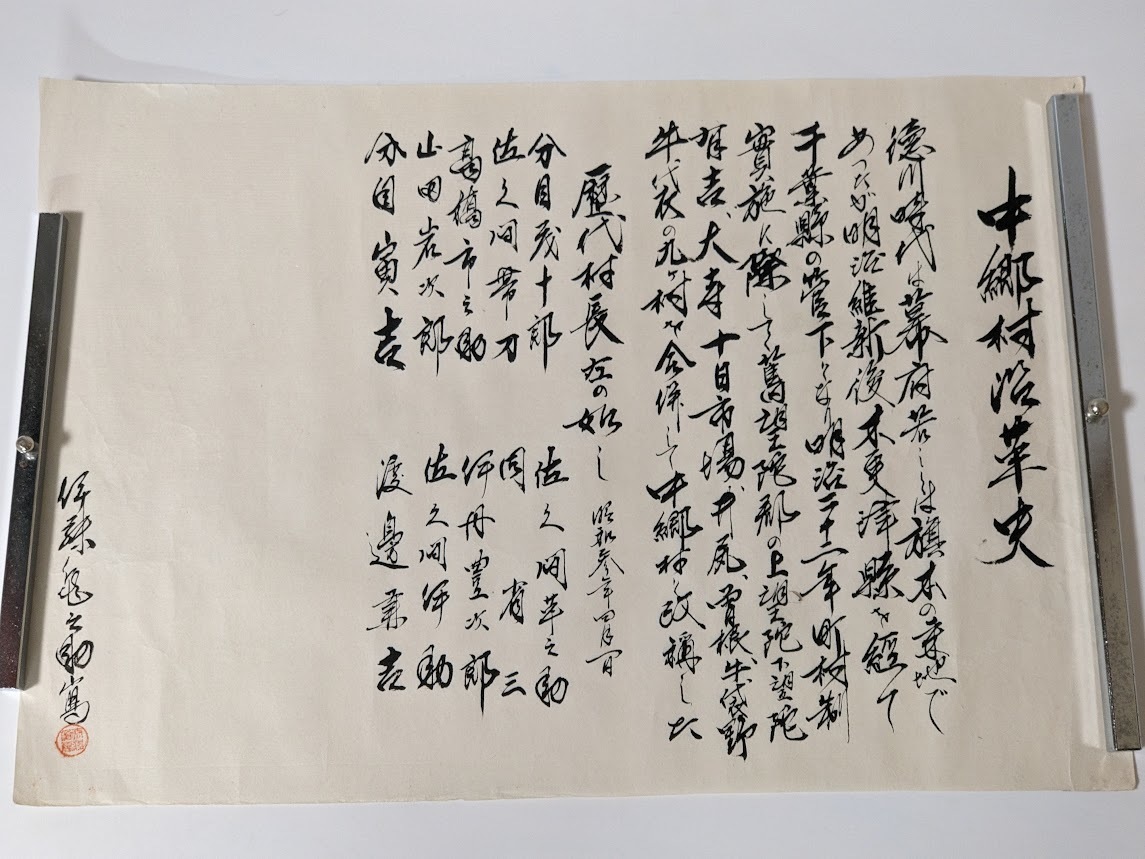 中郷村沿革史
徳川時代は幕府若しくは旗本の采地で
あつたが明治維新後木更津縣を經て
千葉縣の管下となり明治二十二年町村制
實施に際して舊望陀郡の上望陀下望陀
有吉、大寺、十日市場、井尻、曽根、牛袋野
牛袋の九ヶ村を合併して中郷村と改稱した
歴代村長左の如し 昭和参年四月一日
分目茂十郎 佐久間茂之助
佐久間帯刀 同 省三
高橋市之助 伊丹豊次郎
山田岩次郎 佐久間伊助
分目寅吉 渡邊兼吉
之助寫